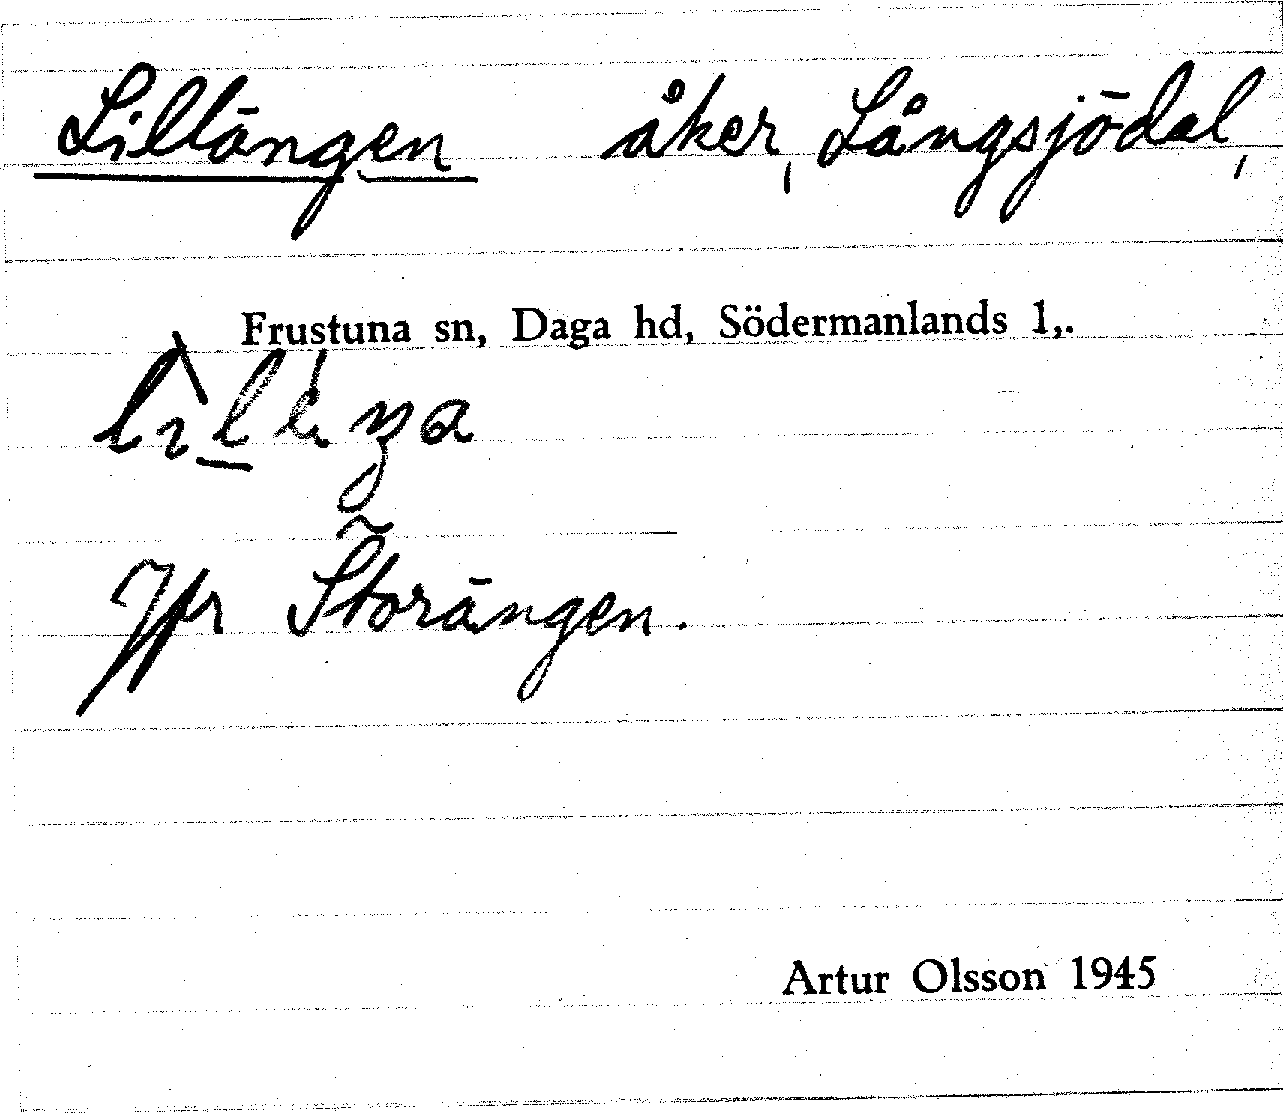 Lillängen åker, Långsjödal,
Frustuna sn, Daga hd, Södermanlands l,.
Jfr Storängen.
Artur Olsson 1945